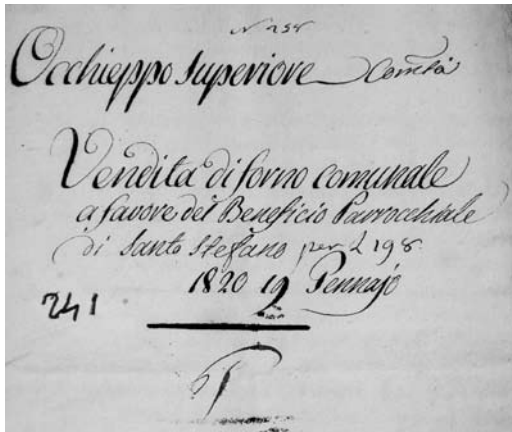 N. 258
Occhieppo Superiore Comtà
Vendita di forno comunale
a favore del Beneficio Parrocchiale
di Santo Stefano per L 198
1820 19 Gennajo
241